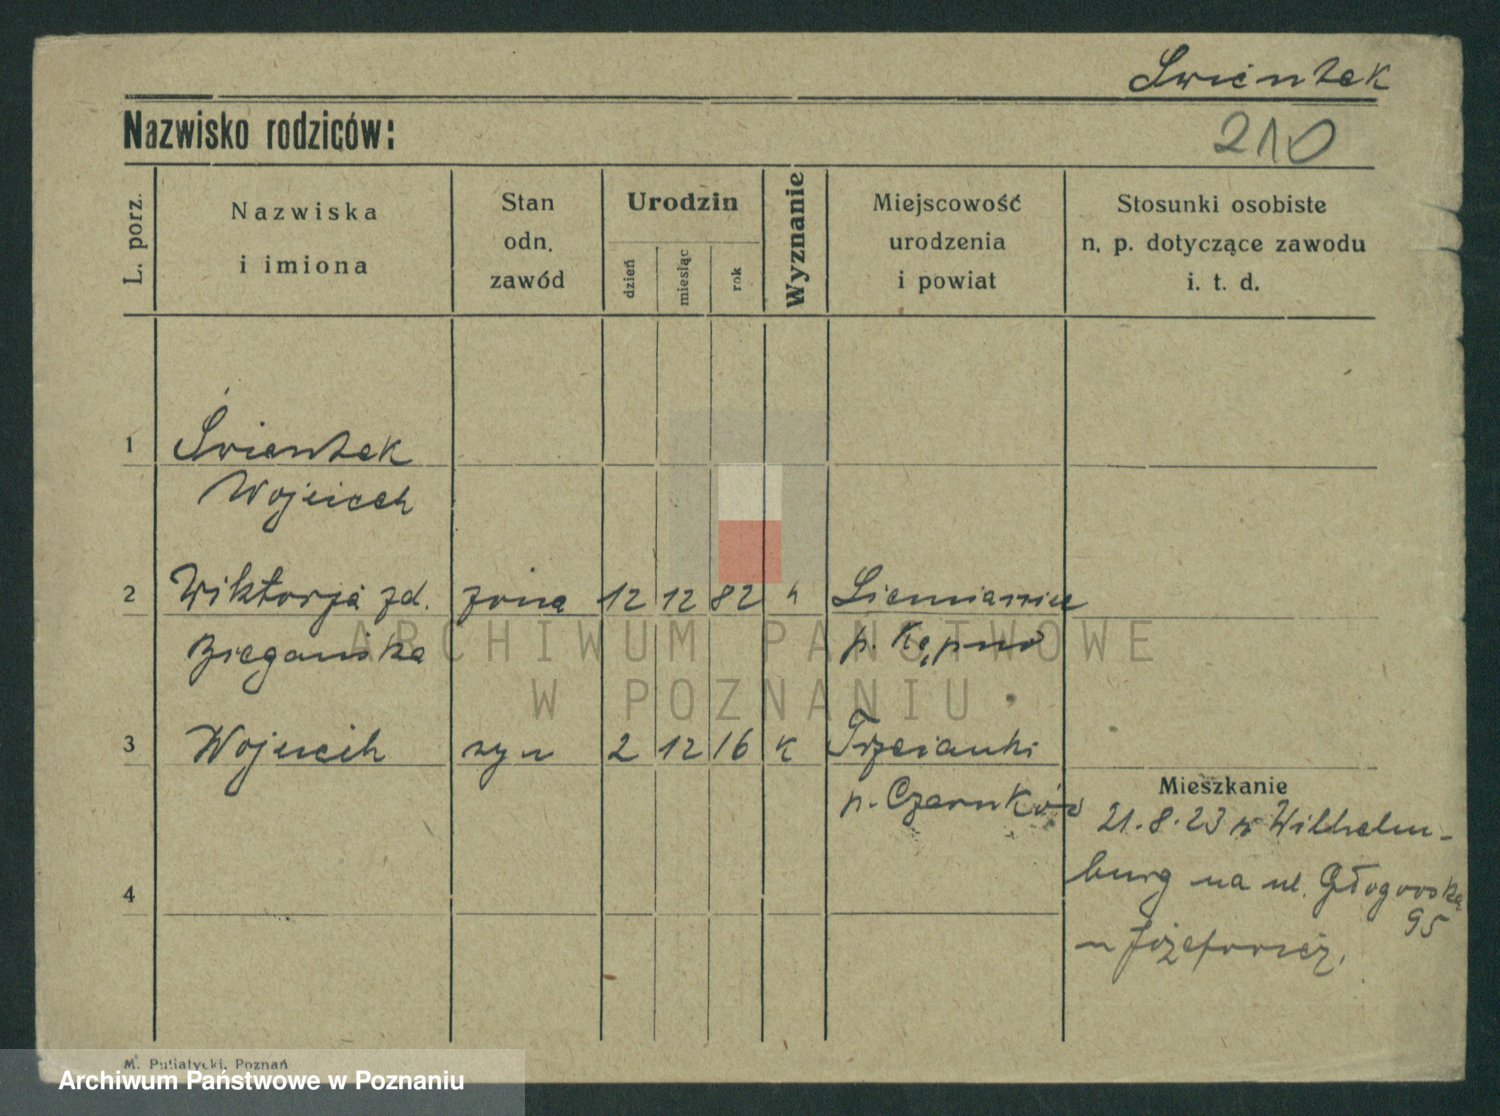 Świentek
Nazwisko rodziców:
210
L. porz.
Nazwiska
i imiona
Stan
odn.
zawód
Urodzin
dzień
miesiąc
rok
Wyznanie
Miejscowość
urodzenia
i powiat
Stosunki osobiste
n. p. dotyczące zawodu
i. t. d.
1 Świentek
Wojciech
2 Wiktorja zd. żona 12 12 82 Siemianice
Biegańska p. Kępno
3 Wojciech syn 2 12 16 K Trzcianki
p. Czarnków
Mieszkanie
21.8.23 z Wilhelm-
burg na ul. Głogowską
95
4
u Józefowicz.
M. Putiatycki, Poznań
ARCHIWUM PAŃSTWOWE
W POZNANIU
Archiwum Państwowe w Poznaniu